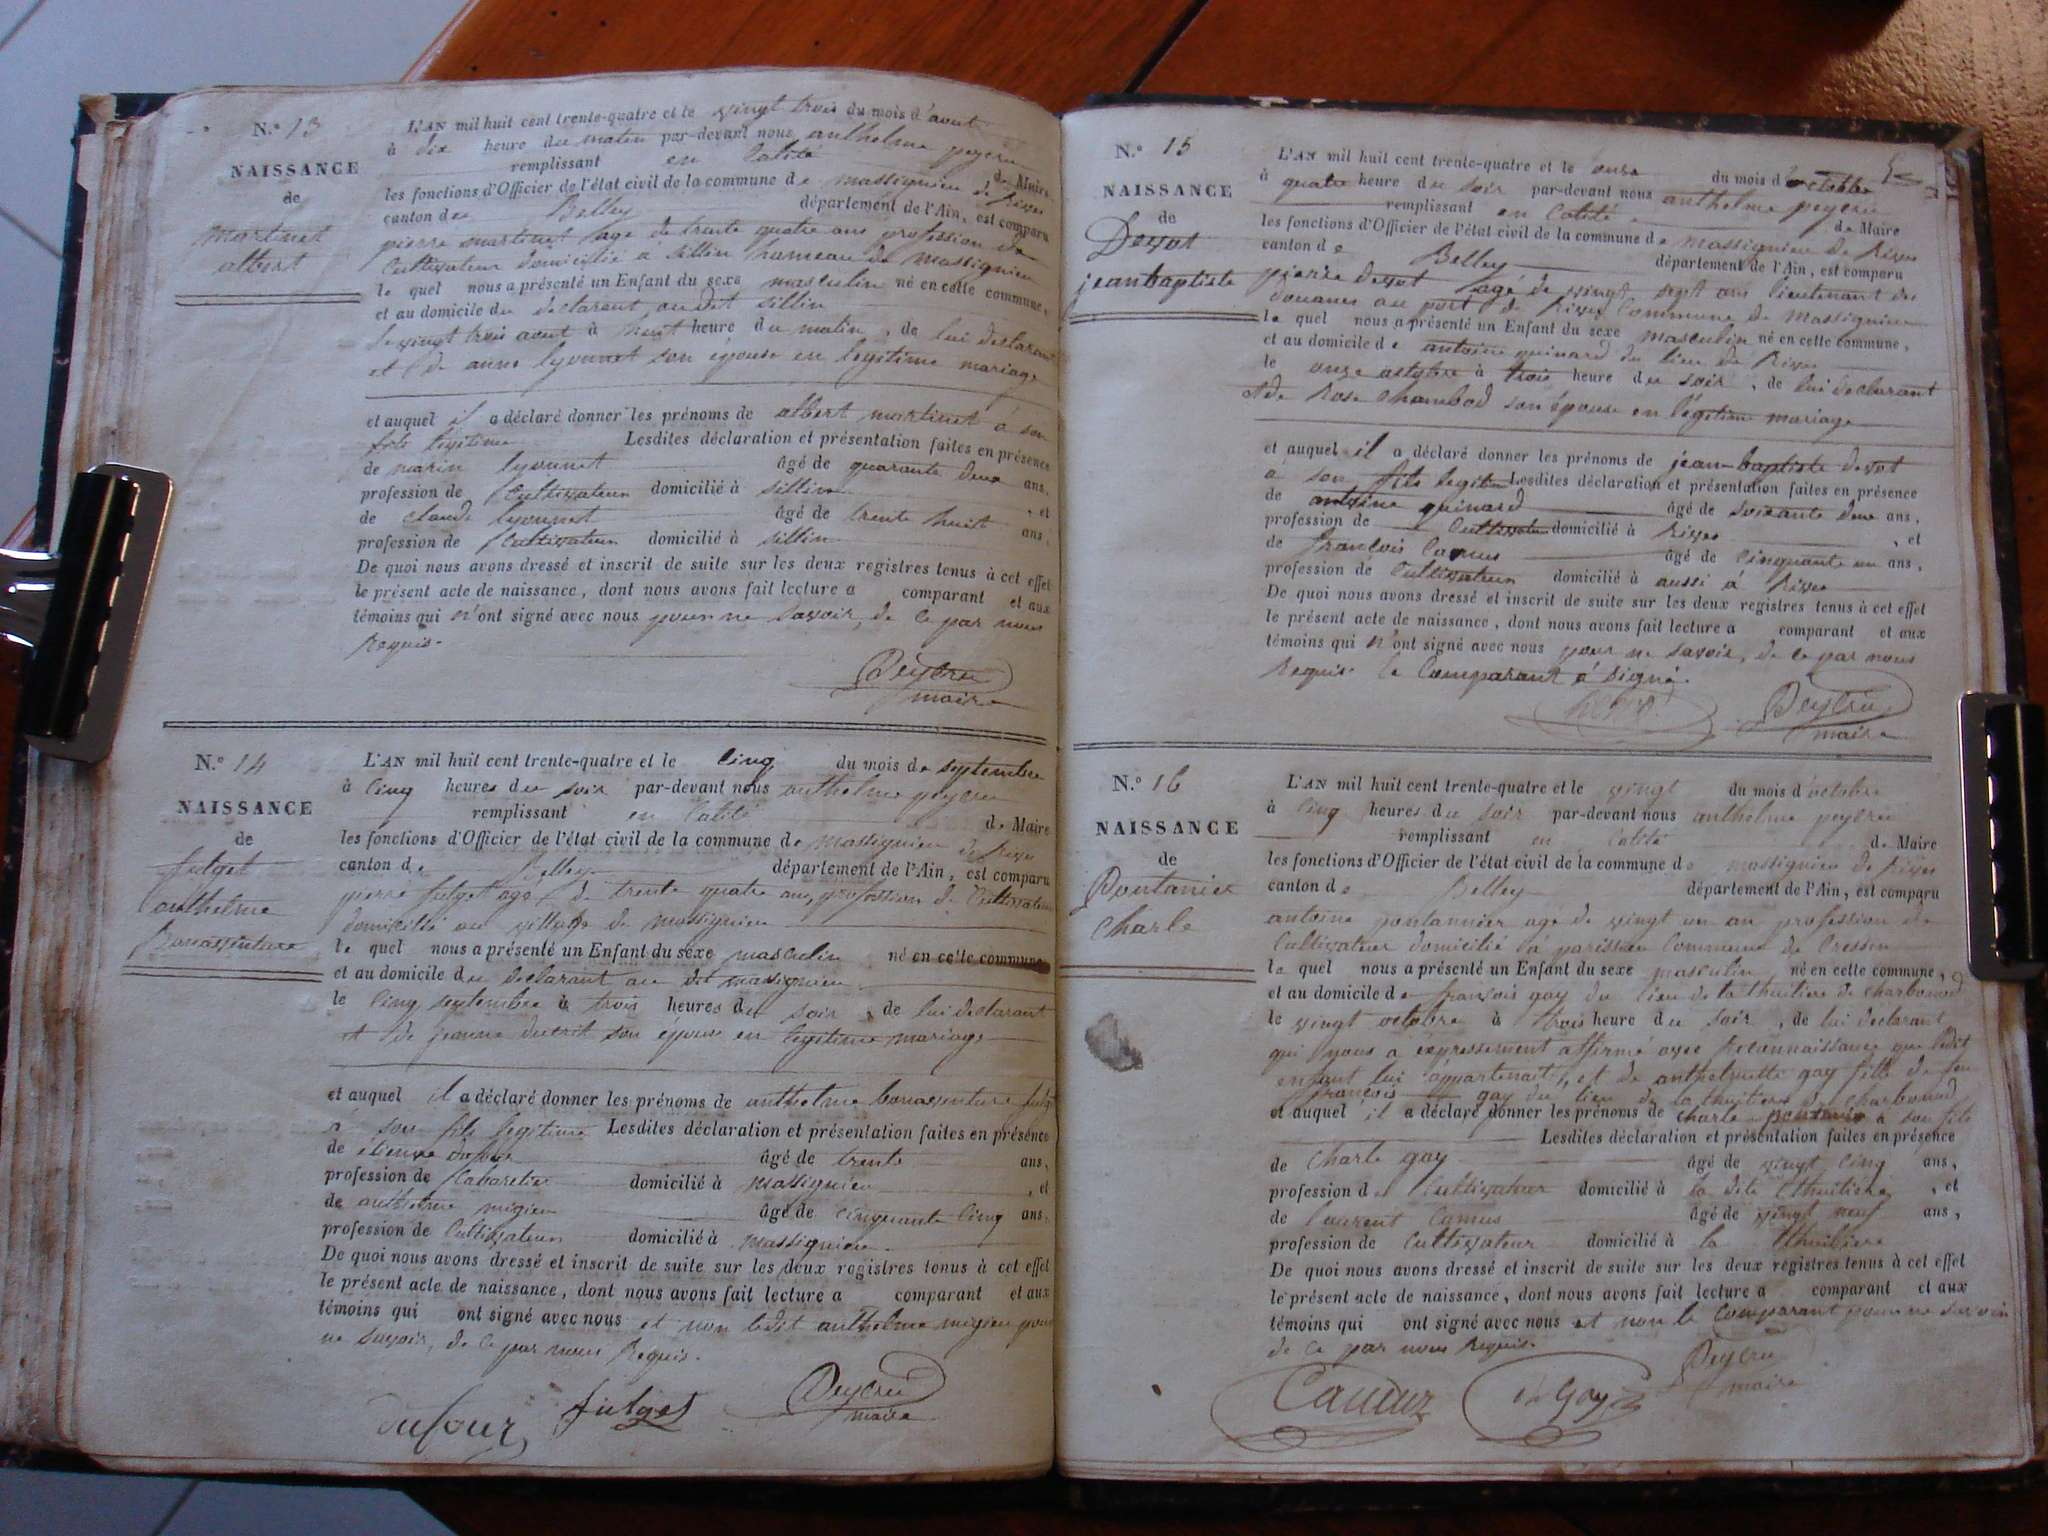 N.º 13
NAISSANCE
de
Martinet
albert
L'AN mil huit cent trente-quatre et le vingt trois du mois d'aout
à dix heure du matin par-devant nous anthelme peyeru
remplissant en calité de Maire
les fonctions d'Officier de l'état civil de la commune de massignieu de Rives
canton de Belley département de l'Ain, est comparu
pierre martinet age de trente quatre ans profession de
Cultivateur domicilié a sillin hameau de Massignieu
le quel nous a présenté un Enfant du sexe masculin né en cette commune,
et au domicile du declarent, au dit sillin
le vingt trois aout à huit heure du matin, de lui declarant
et de anne lyonnet son épouse en legitime mariage
et auquel il a déclaré donner les prénoms de albert martinet à son
fils legitime Lesdites déclaration et présentation faites en présence
de marin lyonnet âgé de quarante deux ans,
profession de Cultivateur domicilié à sillin, et
de claude lyonnet âgé de trente huit ans,
profession de Cultivateur domicilié à sillin
De quoi nous avons dressé et inscrit de suite sur les deux registres tenus à cet effet
le présent acte de naissance, dont nous avons fait lecture a comparant et aux
témoins qui n'ont signé avec nous pour ne savoir, de ce par nous
Requis.
Peyeru
maire
N.º 14
NAISSANCE
de
fulget
anthelme
Bonaventure
L'AN mil huit cent trente-quatre et le cinq du mois de septembre
à cinq heures du soir par-devant nous anthelme peyeru
remplissant en calité de Maire
les fonctions d'Officier de l'état civil de la commune de massignieu de Rives
canton de Belley département de l'Ain, est comparu
pierre fulget age de trente quatre ans, profession de Cultivateur
domicilié au village de massignieu
le quel nous a présenté un Enfant du sexe masculin né en cette commune
et au domicile du declarant au dit massignieu
le cinq septembre à trois heures du soir, de lui declarant
et de jeanne ducrit son épouse en legitime mariage
et auquel il a déclaré donner les prénoms de anthelme bonaventure fulget
a son fils legitime Lesdites déclaration et présentation faites en présence
de etienne dufour âgé de trente ans,
profession de Cabaretier domicilié à massignieu, et
de anthelme migieu âgé de cinquante cinq ans.
profession de Cultivateur domicilié à massignieu.
De quoi nous avons dressé et inscrit de suite sur les deux registres tenus à cet effet
le présent acte de naissance, dont nous avons fait lecture a comparant et aux
témoins qui ont signé avec nous et non ledit anthelme migieu pour
ne savoir, de ce par nous Requis.
dufour fulget Peyeru
maire
N.º 15
NAISSANCE
de
Devot
jean baptiste
L'AN mil huit cent trente-quatre et le onze du mois d'octobre
à quatre heure du soir par-devant nous anthelme peyeru
remplissant en calité de Maire
les fonctions d'Officier de l'état civil de la commune de massignieu de Rives
canton de Belley département de l'Ain, est comparu
pierre devot agé de vingt sept ans lieutenant des
douanes au port de Rives Commune de Massignieu
le quel nous a présenté un Enfant du sexe masculin né en cette commune,
et au domicile de antoine guinard du lieu de Rives
le onze octobre à trois heure du soir, de lui declarant
et de Rose chambod son épouse en légitime mariage
et auquel il a déclaré donner les prénoms de jean-baptiste devot
a son fils legitime Lesdites déclaration et présentation faites en présence
de antoine guinard âgé de soixante deux ans,
profession de Cultivateur domicilié à Rives, et
de françois Camus âgé de cinquante un ans,
profession de Cultivateur domicilié à aussi à Rives
De quoi nous avons dressé et inscrit de suite sur les deux registres tenus à cet effet
le présent acte de naissance, dont nous avons fait lecture a comparant et aux
témoins qui n'ont signé avec nous pour ne savoir, de ce par nous
Requis. le Comparant a signé.
Peyeru
maire
N.º 16
NAISSANCE
de
Pontanier
Charle
L'AN mil huit cent trente-quatre et le vingt du mois d'octobre
à cinq heures du soir par-devant nous anthelme peyeru
remplissant en calité de Maire
les fonctions d'Officier de l'état civil de la commune de massignieu de Rives
canton de Belley département de l'Ain, est comparu
antoine pontannier agé de vingt un an profession de
Cultivateur domicilié à parissieu Commune de Cressin
le quel nous a présenté un Enfant du sexe masculin, né en cette commune,
et au domicile de françois gay du lieu de la thuiliere de charbonod
le vingt octobre à trois heure du soir, de lui declarant
qui nous a expressement affirmé avec Reconnaissance que ledit
enfant lui appartenait, et de anthelmette gay fille de feu
françois gay du lieu de la thuiliere de charbonod
et auquel il a déclaré donner les prénoms de charle pontanier a son fils
Lesdites déclaration et présentation faites en présence
de charle gay âgé de vingt cinq ans,
profession de Cultivateur domicilié à la dite thuiliere, et
de laurent Camus âgé de vingt neuf ans,
profession de Cultivateur domicilié à la thuiliere
De quoi nous avons dressé et inscrit de suite sur les deux registres tenus à cet effet
le présent acte de naissance, dont nous avons fait lecture a comparant et aux
témoins qui ont signé avec nous et non le Comparant pour ne savoir
de ce par nous Requis.
Camuz Gay Peyeru
maire